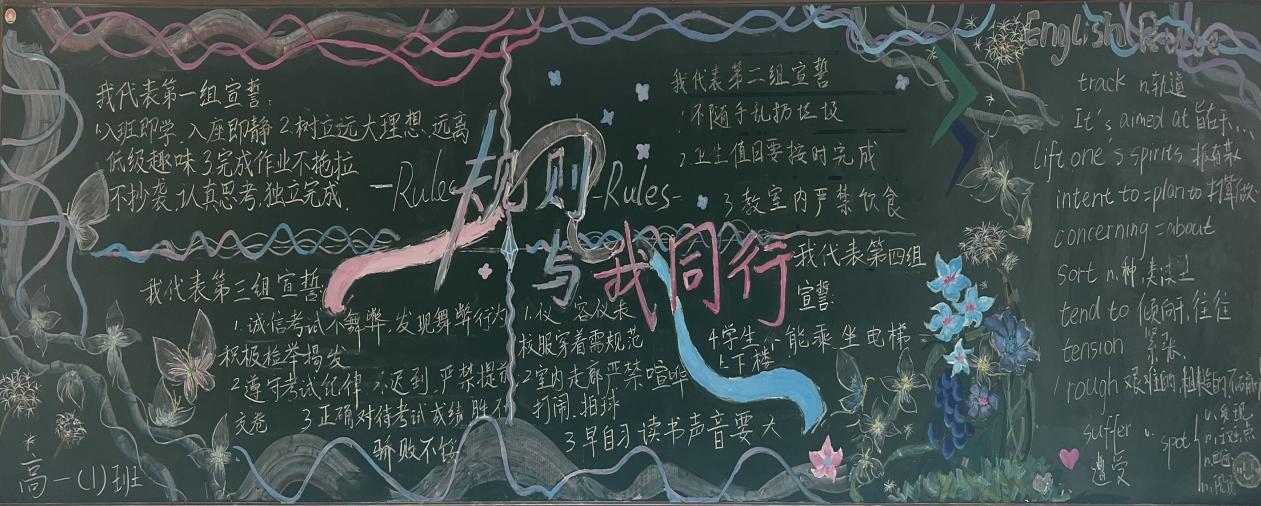 我代表第一组宣誓:
1.入班即学,入座即静 2.树立远大理想,远离
低级趣味 3.完成作业不拖拉
不抄袭,认真思考,独立完成.
我代表第二组宣誓
1.不随手乱扔垃圾
2.卫生值日要按时完成
3.教室内严禁饮食
-Rules 规则-Rules-
与我同行
我代表第三组宣誓
1.诚信考试不舞弊,发现舞弊行为
积极检举揭发
2.遵守考试纪律 迟到,严禁提前
交卷 3.正确对待考试成绩,胜不
骄败不馁
我代表第四组
宣誓:
1.仪 容仪表
校服穿着需规范
2.室内走廊严禁喧哗
打闹、拍球
3.早自习读书声音要大
4.学生 能乘坐电梯
上下楼
English
track n.轨道
It's aimed at 旨在...
lift one's spirits
intent to=plan to 打算做
concerning=about
sort n.种,类
tend to 倾向于,往往
tension 紧张
rough 艰难的,粗糙的
suffer v.
遭受
spot
v.发现
高一(1)班